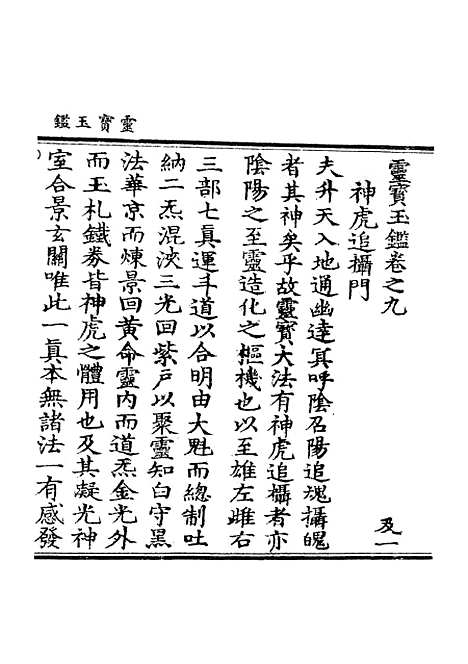 靈寳玉鑑
靈寳玉鑑卷之九
及一
神虎追攝門
夫升天入地通幽達冥呼陰召陽追魂攝魄
者其神矣乎故靈寳大法有神虎追攝者亦
陰陽之至靈造化之樞機也以至雄左雌右
三部七眞運斗道以合明由大魁而總制吐
納二炁混浹三光回紫戸以聚靈知白守黑
法華京而煉景回黄命靈内而道炁金光外
而玉札鐵券皆神虎之體用也及其凝光神
室合景玄關唯此一眞本無諸法一有感發